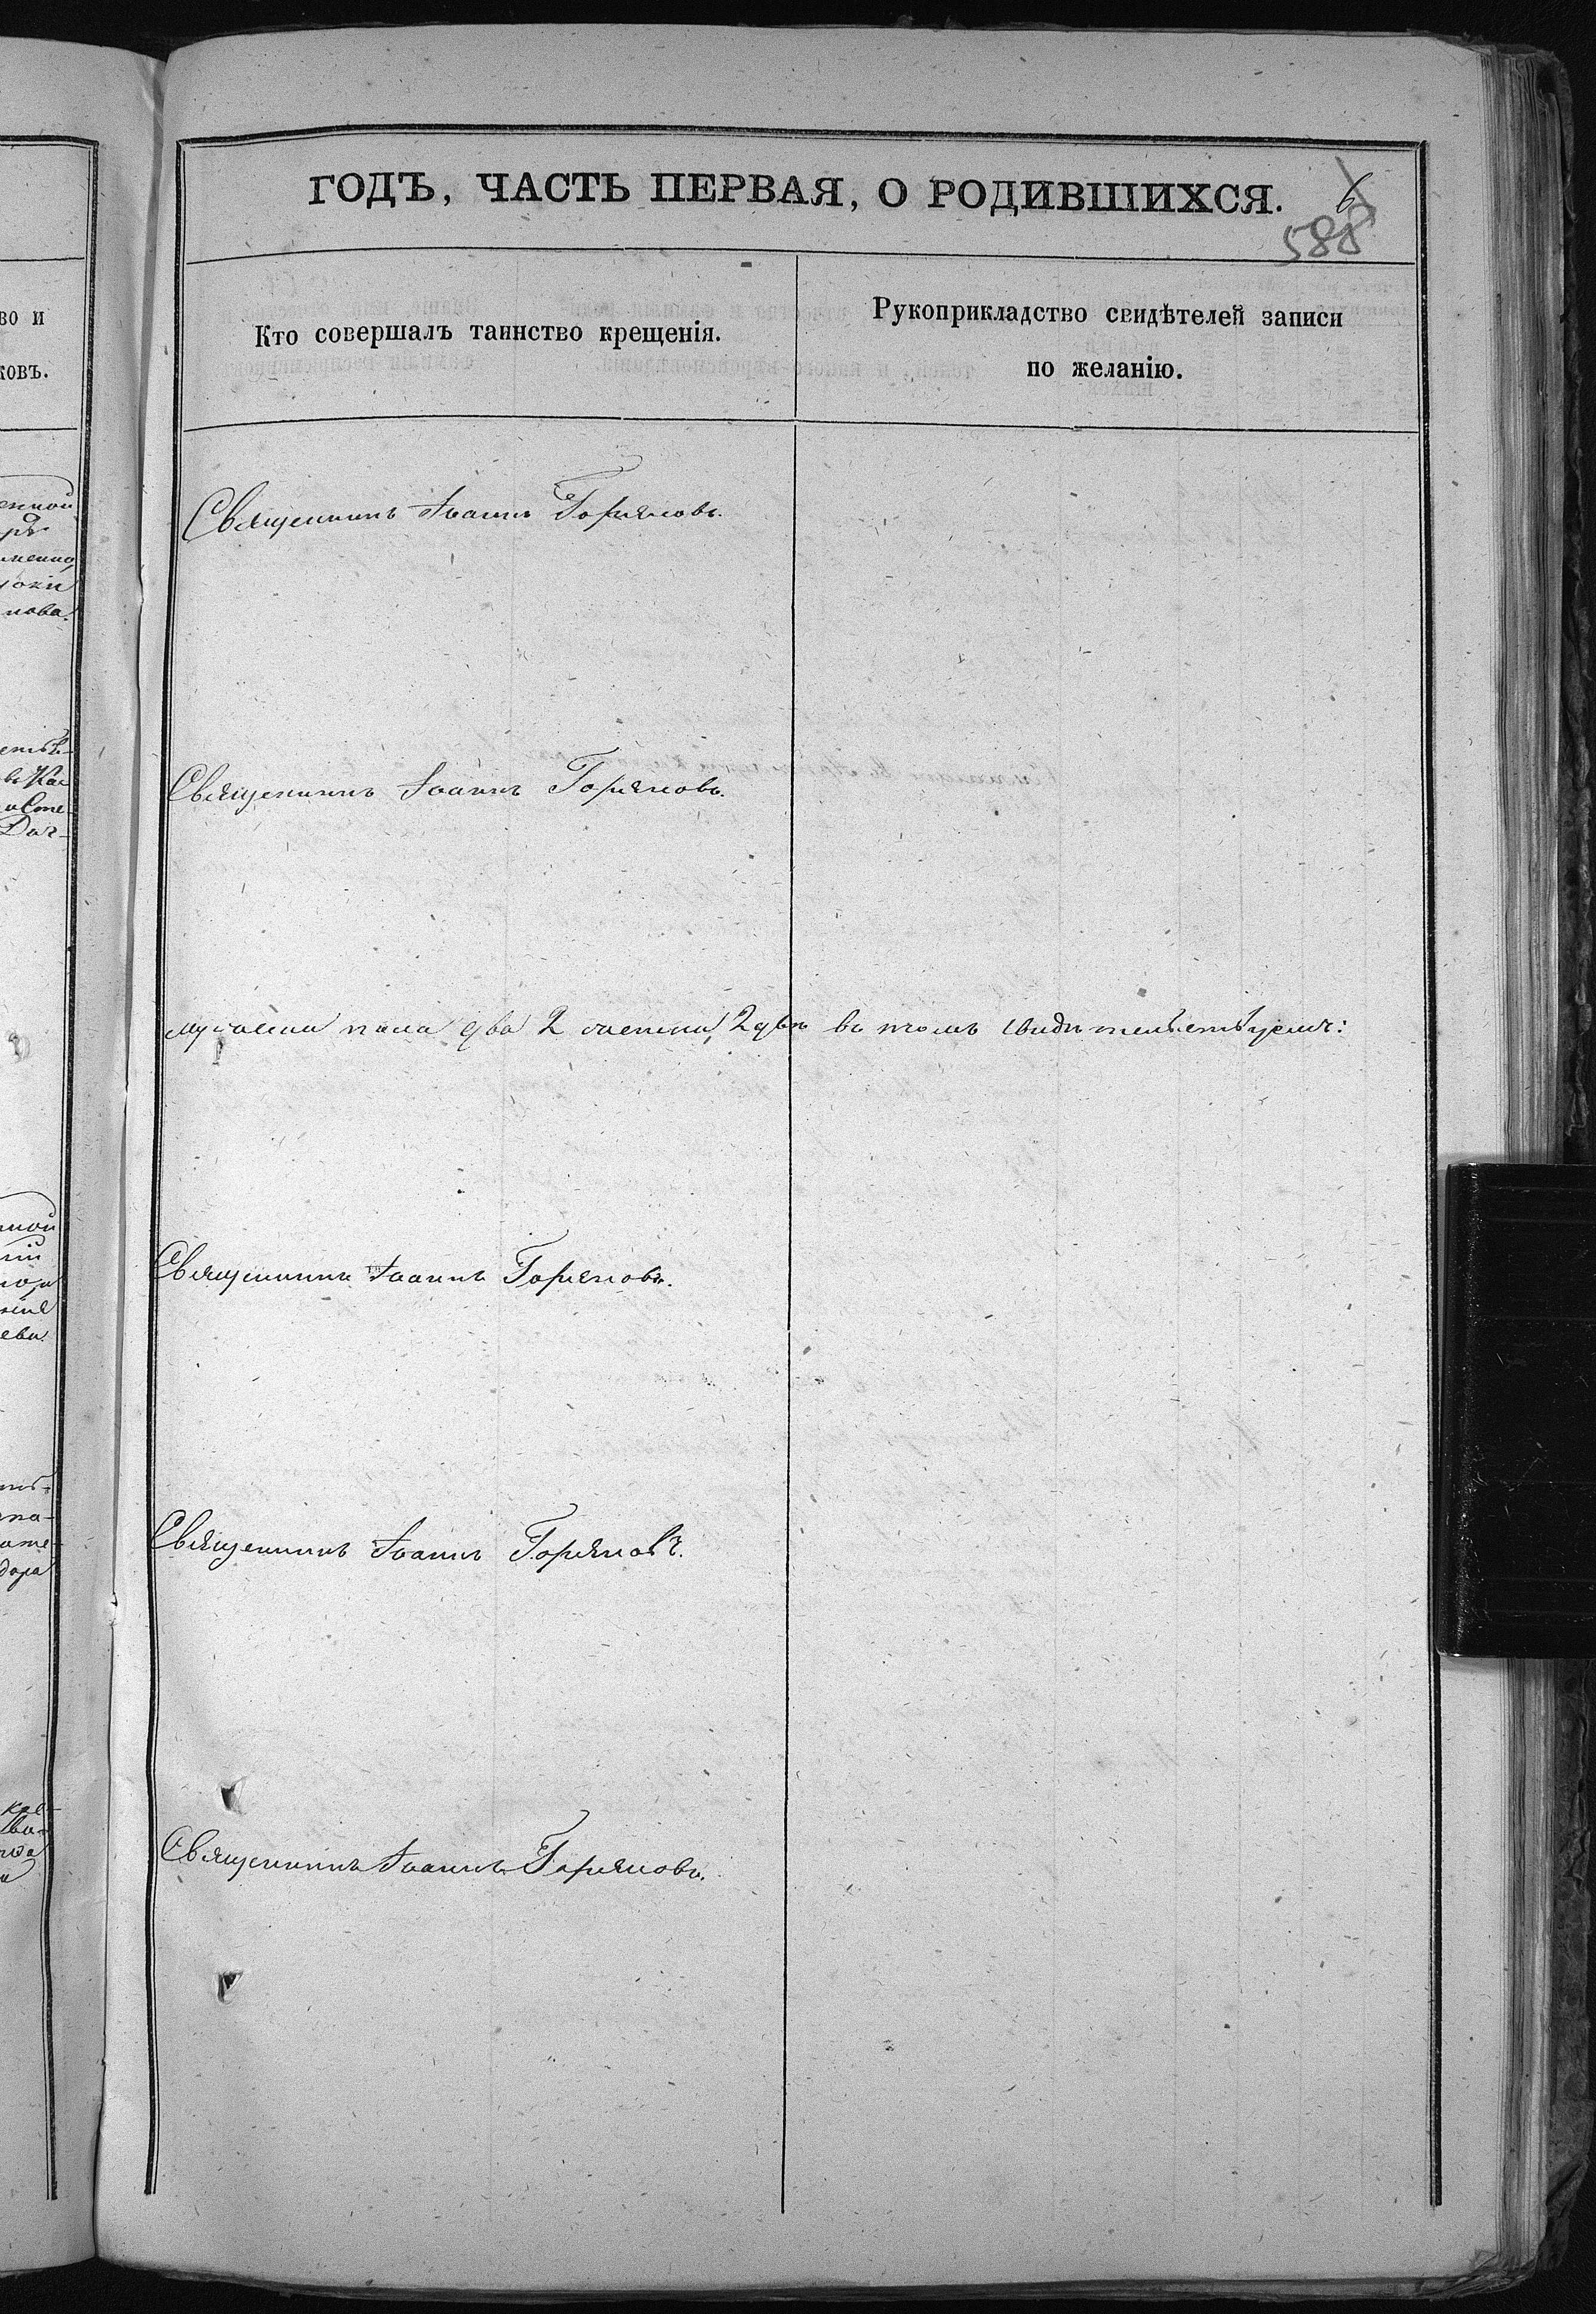 ГОДЪ, ЧАСТЬ ПЕРВАЯ, О РОДИВШИХСЯ.
6
588
во и
ковъ.
Кто совершалъ таинство крещенія.
Рукоприкладство свидѣтелей записи
по желанію.
Священникъ Іоаннъ Горяновъ.
Священникъ Іоаннъ Горяновъ.
мужеска пола два 2 женска 2 два въ томъ свидѣтельствуемъ:
Священникъ Іоаннъ Горяновъ.
Священникъ Іоаннъ Горяновъ.
Священникъ Іоаннъ Горяновъ.